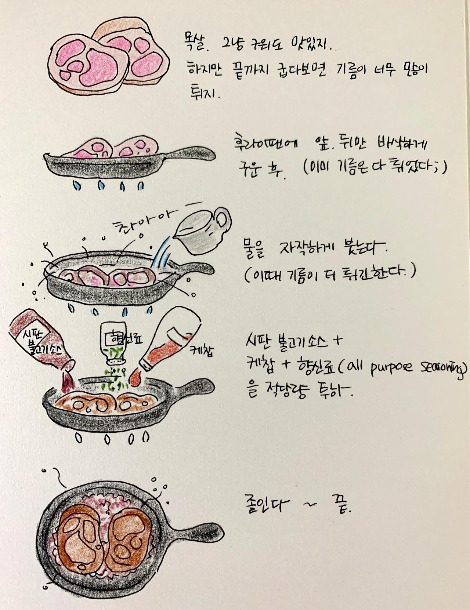 목살. 그냥 구워도 맛있지.
하지만 끝까지 굽다보면 기름이 너무 많이
튀지.
후라이팬에 앞. 뒤만 바삭하게
구운 후. (이미 기름은 다 튀었다;)
촤아아―
물을 자작하게 붓는다.
(이때 기름이 더 튀긴한다.)
시판
불고기소스
향신료
케찹
시판 불고기소스 +
케찹 + 향신료 (all purpose seasoning)
을 적당량 투하.
졸인다 ~ 끝.